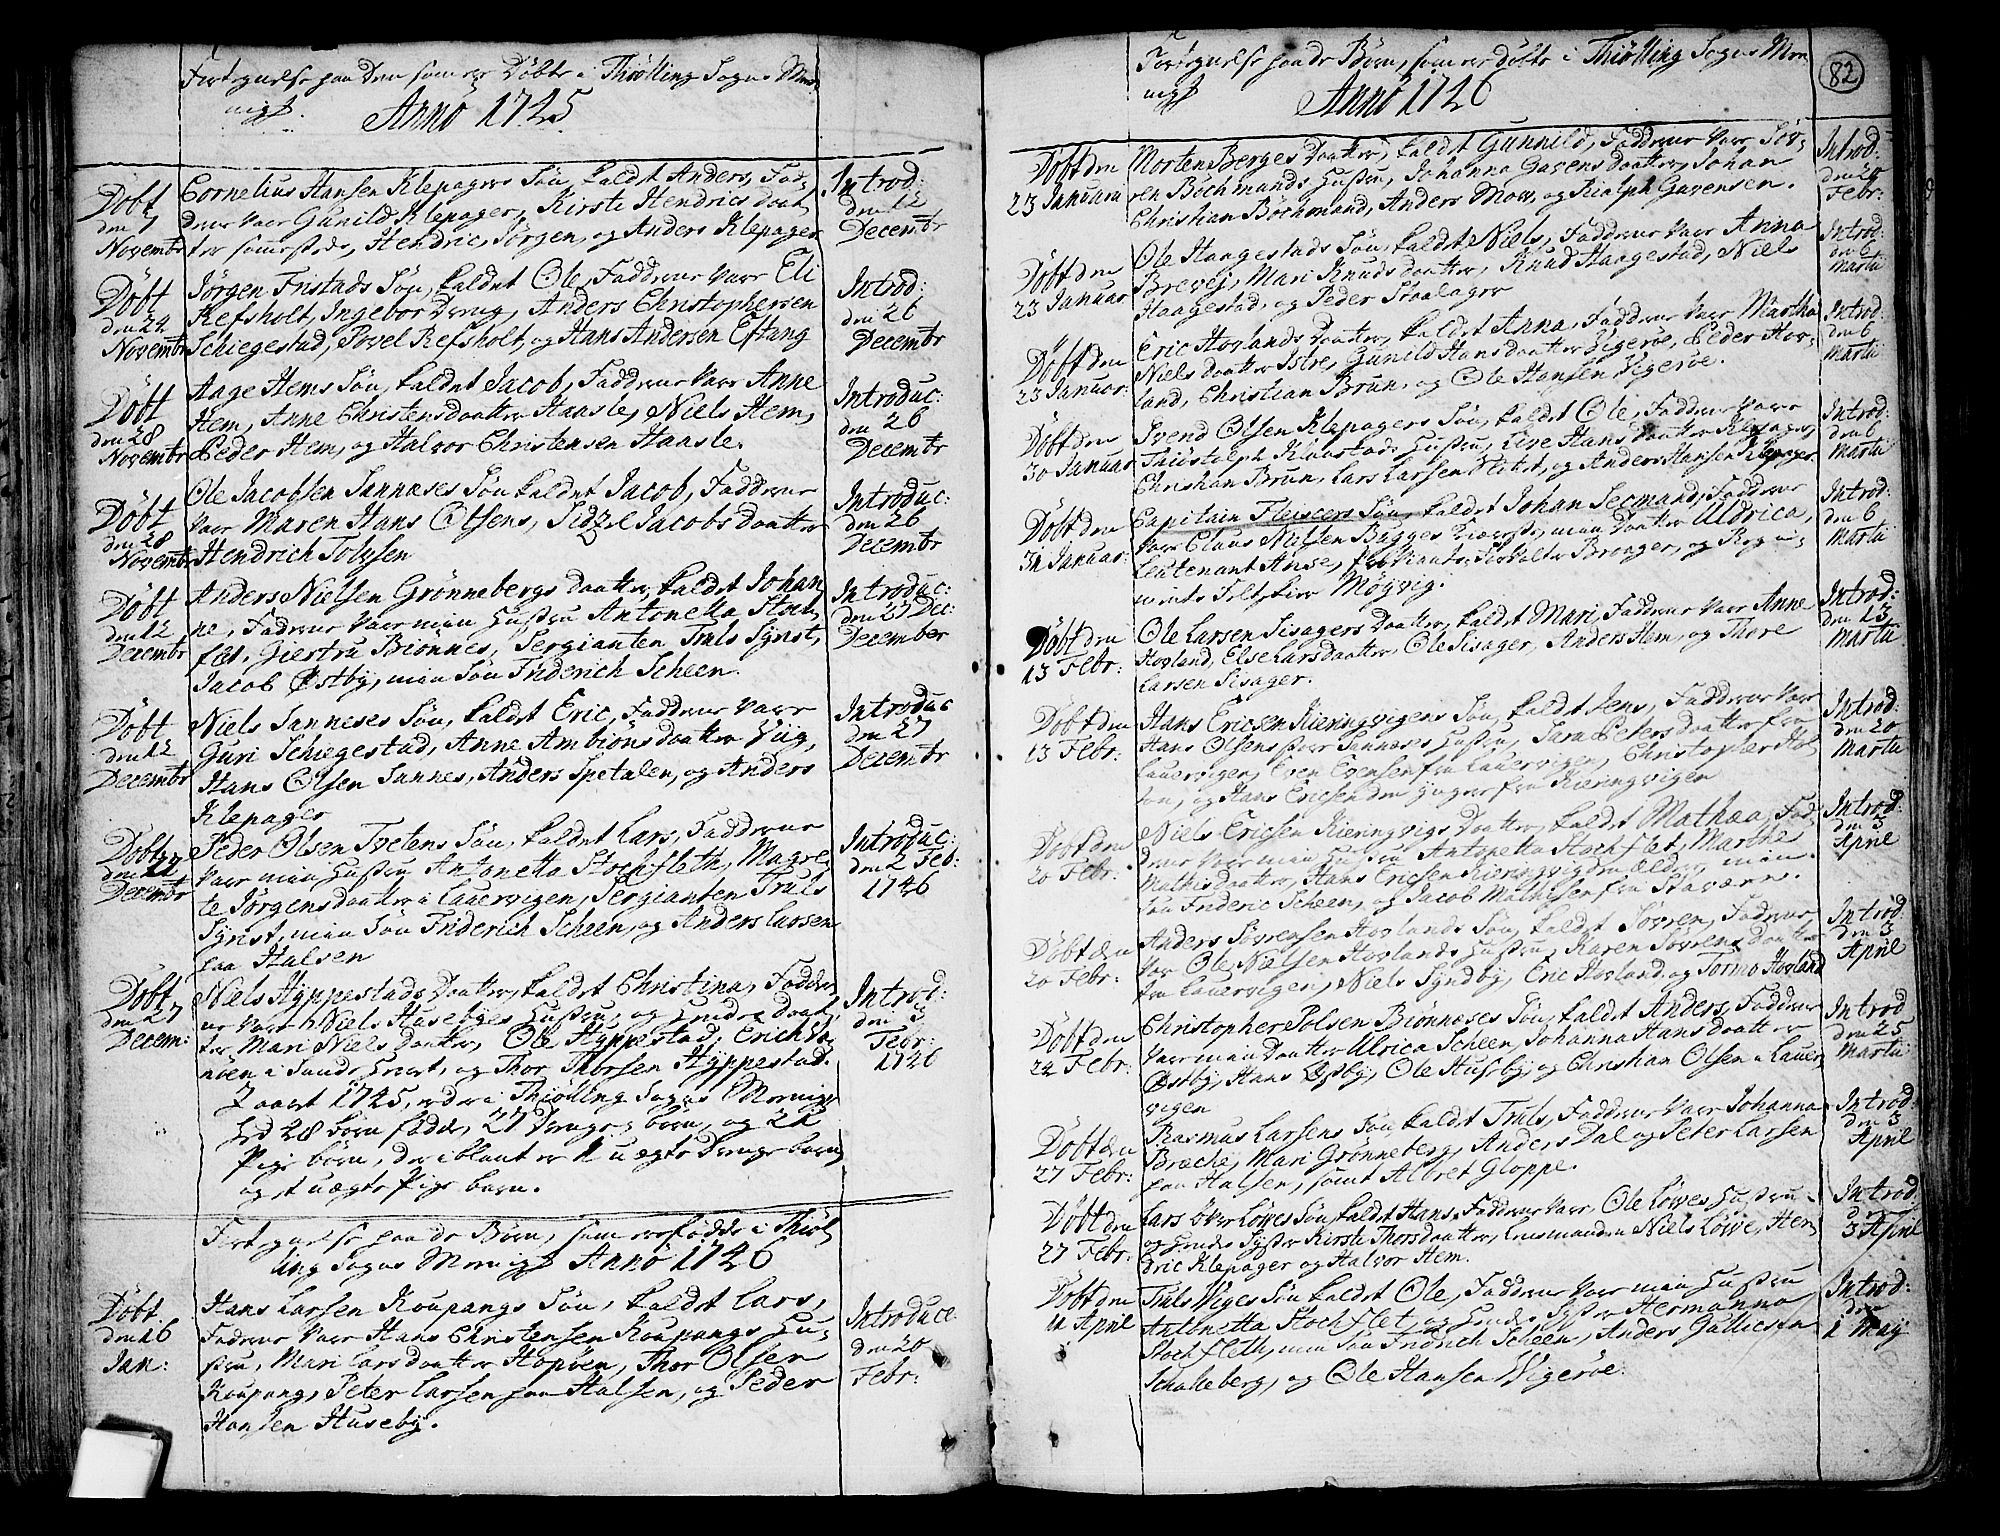 Fortegnelse paa dem som ere Døbte i Thiölling Sogns Me-
nigh.
Anno 1725
Döbt
den 7
Novembr
Cornelius Hansen Klepagers Søn, kaldet Anders, Fad-
drene vare Gunild Klepager, Kirsti Hendrics daat-
ter sammesteds, Hendric, Jörgen, og Anders Klepager
Introd:
den 12
Decembr
Döbt
den 24
Novembr
Jörgen Fristads Søn, kaldet Ole, Faddrene vare Eli
Refsholt, Ingebor Drug, Anders Christophersen
Schiegestad, Povel Refsholt, og Hans Andersen Eftang
Introd:
den 26
Decembr
Döbt
den 28
Novembr
Aage Hems Søn, kaldet Jacob, Faddrene vare Anne
Hem, Anne Christensdaatter Haasle, Niels Hem,
Peder Hem, og Halvor Christensen Haasle.
Introduc:
den 26
Decembr
Döbt
den 28
Novembr
Ole Jacobsen Sannæses Søn kaldet Jacob, Faddrene
vare Maren Hans Olsens, Sidzel Jacobs daatter
Hendrich Tolvsen
Introduc:
den 26
Decembr
Döbt
den 12
Decembr
Anders Nielsen Grönnebergs daatter, kaldet Johan-
ne, Fadrene vare min Hustru Antonetta Stoch-
flet, Giertru Biönnes, Sergianten Truls Synst,
Jacob Østby, min Søn Friderich Scheen.
Introduc:
den 27 De:
December
Döbt
den 12
Decembr
Niels Sanneses Søn, kaldet Eric, Faddrene vare
Guri Schiegestad, Anne Ambiöns daatter Viig,
Hans Olsen Sannes, Anders Spetalen, og Anders
Klepager
Introduc
den 27
Decembr
Döbt
den 27
Decembr
Peder Olsen Tvetens Søn, kaldet Lars, Faddrene
vare min Hustru Antonetta Stochfleth, Magre-
te Jörgensdaatter i Lauervigen, Sergianten Truls
Synst, min Søn Friderich Scheen, og Anders Larsen
paa Halsen
Introduc:
den 2 Feb:
1726
Döbt
den 27
Decem:
Niels Hyppestads daatter, kaldet Christina, Fadder-
ne vare Niels Husebyes Hustru, og Hendes daat-
ter Mari Niels daatter, Ole Hyppestad, Erich
i Sande , og Thor Thorsen Hyppestad.
Introd:
den 3
Febr:
1726
I aaret 1725, ere i Thiölling Sogns Menig-
hed 48 børn fødde, 27 Drenge børn, og 21
Pige børn, der iblant er 1 uægte Drenge barn,
og et uægte Pige barn.
Fortegnelse paa de Børn, som ere födde i Thiöl-
ling Sogns Menigh Anno 1726
Döbt
den 26
Jan:
Hans Larsen Koupangs Søn, kaldet Lars,
Fadrene vare Hans Christensen Koupangs Hu-
stru, Mari Lars daatter Hopöen, Thor Olsen
Koupang, Peter Larsen paa Halsen, og Peder
Hansen Huseby.
Introduce
den 20
Febr:
82
Fortegnelse paa de Børn, som ere döbte i Thiölling Sogns Me-
nigh
Anno 1726
Döbt den
23 Januarii
Morten Berges daatter, kaldet Gunnild, Faddrene vare Sör-
en Böchmands Hustru, Johanna Gavens daatter, Johan
Christian Böchmand, Anders Mow, og Rialph Gavensen.
Introd:
den 20
Febr:
Döbt den
23 Januar
Ole Haagestads Søn, kaldet Niels, Faddrene vare Anna
Brevej, Mari Knudsdaatter, Knud Haagestad, Niels
Haagestad, og Peder Staalager
Introd:
den 6
Martii
Döbt den
23 Januar:
Eric Hovlands daatter, kaldet Anna, Faddrene vare Martha
Niels daatter Istre, Gunild Hansdaatter Vigeröe, Peder Hov-
land, Christian Brun, og Ole Hansen Vigeröe.
Introd:
den 6
Martii
Döbt den
30 Januar
Svend Olsen Klepagers Søn, kaldet Ole, Faddrene vare
Taiöstolph Kaastads Hustru, Live Hans daatter Klepager,
Christian Brun, Lars Larsen Fletet, og Anders Hansen Klepager
Introd:
den 6
Martii
Döbt den
31 Januar:
Capitain Fleiscers Søn, kaldet Johan Secmand, Faddrene
vare Claus Nilsen Bagges Kiereste, min daatter Uldrica,
Leutenant Anse, Proviant Forvalter Bronger, og Regi-
ments Feltskier Mögvig.
Introd:
den 6
Martii
Döbt den
13 Febr:
Ole Larsen Sisagers daatter, kaldet Mari, Faddrene vare Anne
Hovland, Else Larsdaatter, Ole Sisager, Anders Hem, og Thore
Larsen Sisager.
Introd:
den 13
Martii
Döbt den
13 Febr:
Hans Ericsen Kieringvigens Søn, kaldet Jens, Faddrene vare
Hans Olsens Sannæses Hustru, Sara Peters daatter fra
Lauervigen, Even Evensen fra Lauervigen, Christopher Hol-
sen, og Hans Ericsen den yngre fra Kieringvigen
Introd:
den 20
Martii
Döbt den
20 Febr:
Niels Ericsen Kieringvigs daatter, kaldet Mathæa, Fad-
drene vare min Hustru Antonetta Stochflet, Marthe
Mathisdaatter, Hans Ericsen Kieringvig den ældre, min
Søn Frideric Scheen, og Jacob Mathisen fra Staværn.
Introd:
den 3
April
Döbt den
20 Febr:
Anders Sörrensen Hovlands Søn, kaldet Sörren, Fadrene
vare Ole Nielsen Hovlands Hustru, Karen Sörrens daatter
fra Lauervigen, Niels Syndby, Eric Hovland, og Tormo Hovland
Introd:
den 3
April
Döbt den
24 Febr:
Christopher Polsen Biönnæses Søn, kaldet Anders, Faddrene
vare min daatter Ulrica Scheen, Johanna Hansdaatter
Østby, Hans Østby, Ole Huseby, og Christian Olsen i Lauer-
vigen
Introd
den 25
Martii
Döbt den
27 Febr:
Rasmus Larsens Søn, kaldet Truls, Faddrene vare Johanna
Bræche, Mari Grönneberg, Anders Dal og Peter Larsen
paa Halsen, samt Albret Gloppe.
Introd:
den 3
April
Döbt den
27 Febr:
Lars över Löwes Søn, kaldet Hans, Faddrene vare, Ole Löwes Hustru
og Hendes Syster Kirsti Thorsdaatter, Lensmanden Niels Löwe, Hen-
dric Klepager og Halvor Hem.
Introd
den
3 April
Döbt den
11 April
Truls Wiges Søn kaldet Ole, Faddrene vare min Hustru
Antonetta Stochflet, og Hendes Syster Hermanna
Stochfleth, min Søn Fridrich Scheen, Anders Gulliesen
Schalleberg, og Ole Hansen Wigeröe.
Introd:
den
1 Maij